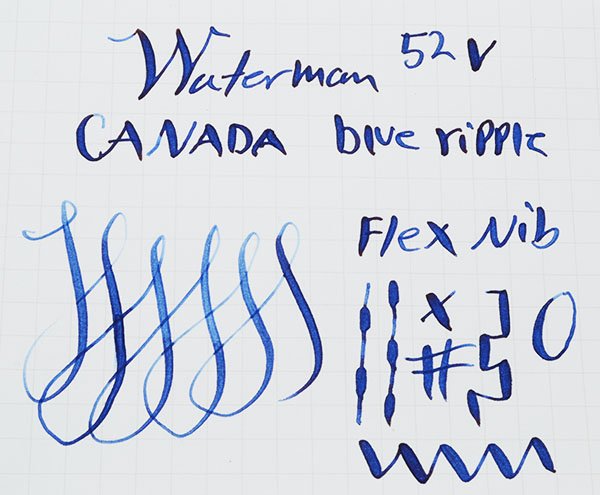 Waterman 52 V
CANADA blue ripple
Flex Nib